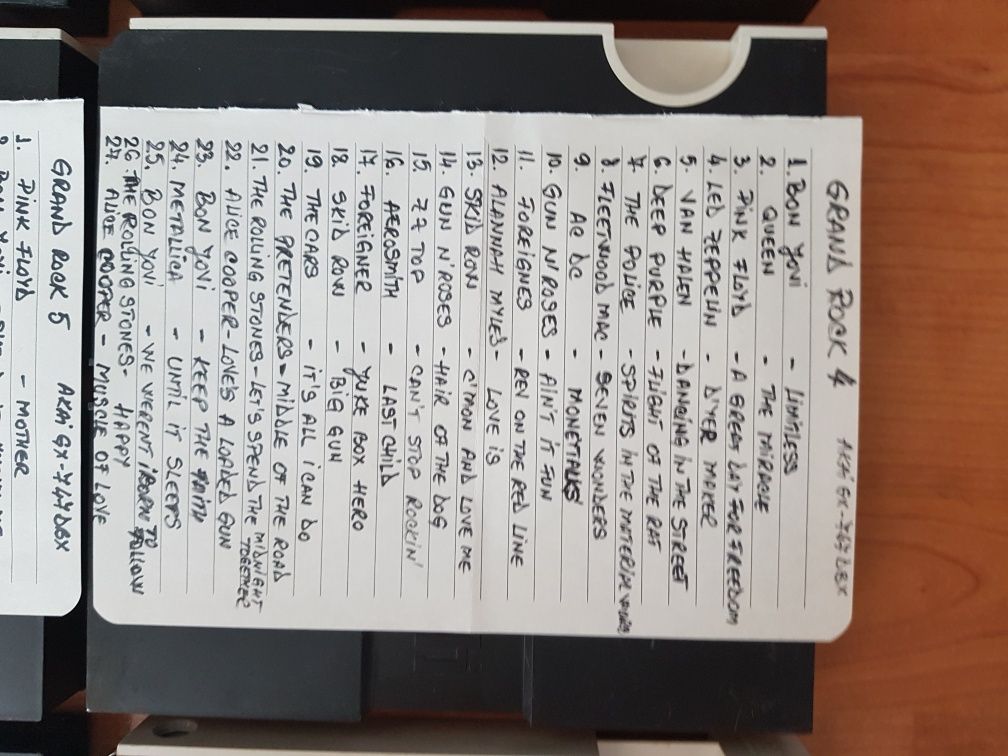 GRAND ROCK 4 AKAI GX-747 DBX
1. BON YOVI - LIMITLESS
2. QUEEN - THE MIRACLE
3. PINK FLOYD - A GREAT DAY FOR FREEDOM
4. LED ZEPPELIN - D'YER MAKER
5. VAN HALEN - DANCING IN THE STREET
6. DEEP PURPLE - FLIGHT OF THE RAT
7. THE POLICE - SPIRITS IN THE MATERIAL WORLD
8. FLEETWOOD MAC - SEVEN WONDERS
9. AC DC - MONEYTALKS
10. GUN N'ROSES - AIN'T IT FUN
11. FOREIGNES - REV ON THE RED LINE
12. ALANNAH MYLES - LOVE IS
13. SKID ROW - C'MON AND LOVE ME
14. GUN N'ROSES - HAIR OF THE DOG
15. ZZ TOP - CAN'T STOP ROCKIN'
16. AEROSMITH - LAST CHILD
17. FOREIGNER - YUKE BOX HERO
18. SKID ROW - BIG GUN
19. THE CARS - IT'S ALL I CAN DO
20. THE PRETENDERS - MIDDLE OF THE ROAD
21. THE ROLLING STONES - LET'S SPEND THE MIDNIGHT TOGETHER
22. ALICE COOPER - LOVE'S A LOADED GUN
23. BON YOVI - KEEP THE FAITH
24. METALLICA - UNTIL IT SLEEPS
25. BON YOVI - WE WERENT BORN TO FOLLOW
26. THE ROLLING STONES - HAPPY
27. ALICE COOPER - MUSCLE OF LOVE
GRAND ROCK 5 AKAI GX-747 DBX
1. PINK FLOYD - MOTHER